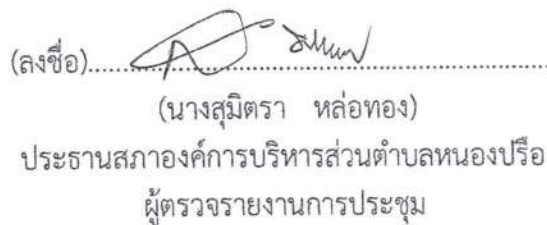 (ลงชื่อ)
(นางสุมิตรา หล่อทอง)
ประธานสภาองค์การบริหารส่วนตำบลหนองปรือ
ผู้ตรวจรายงานการประชุม